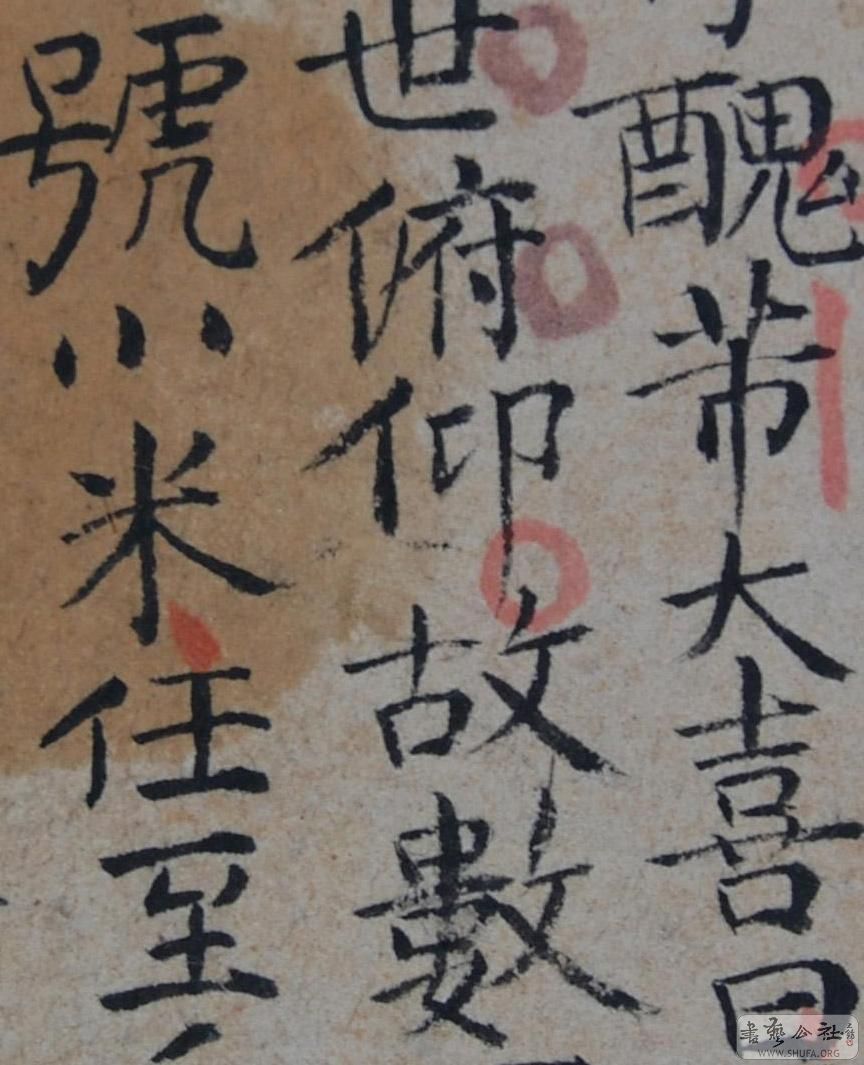 醜芾大喜曰
世俯仰故數
號小米任至
書藝公社
WWW.SHUFA.ORG